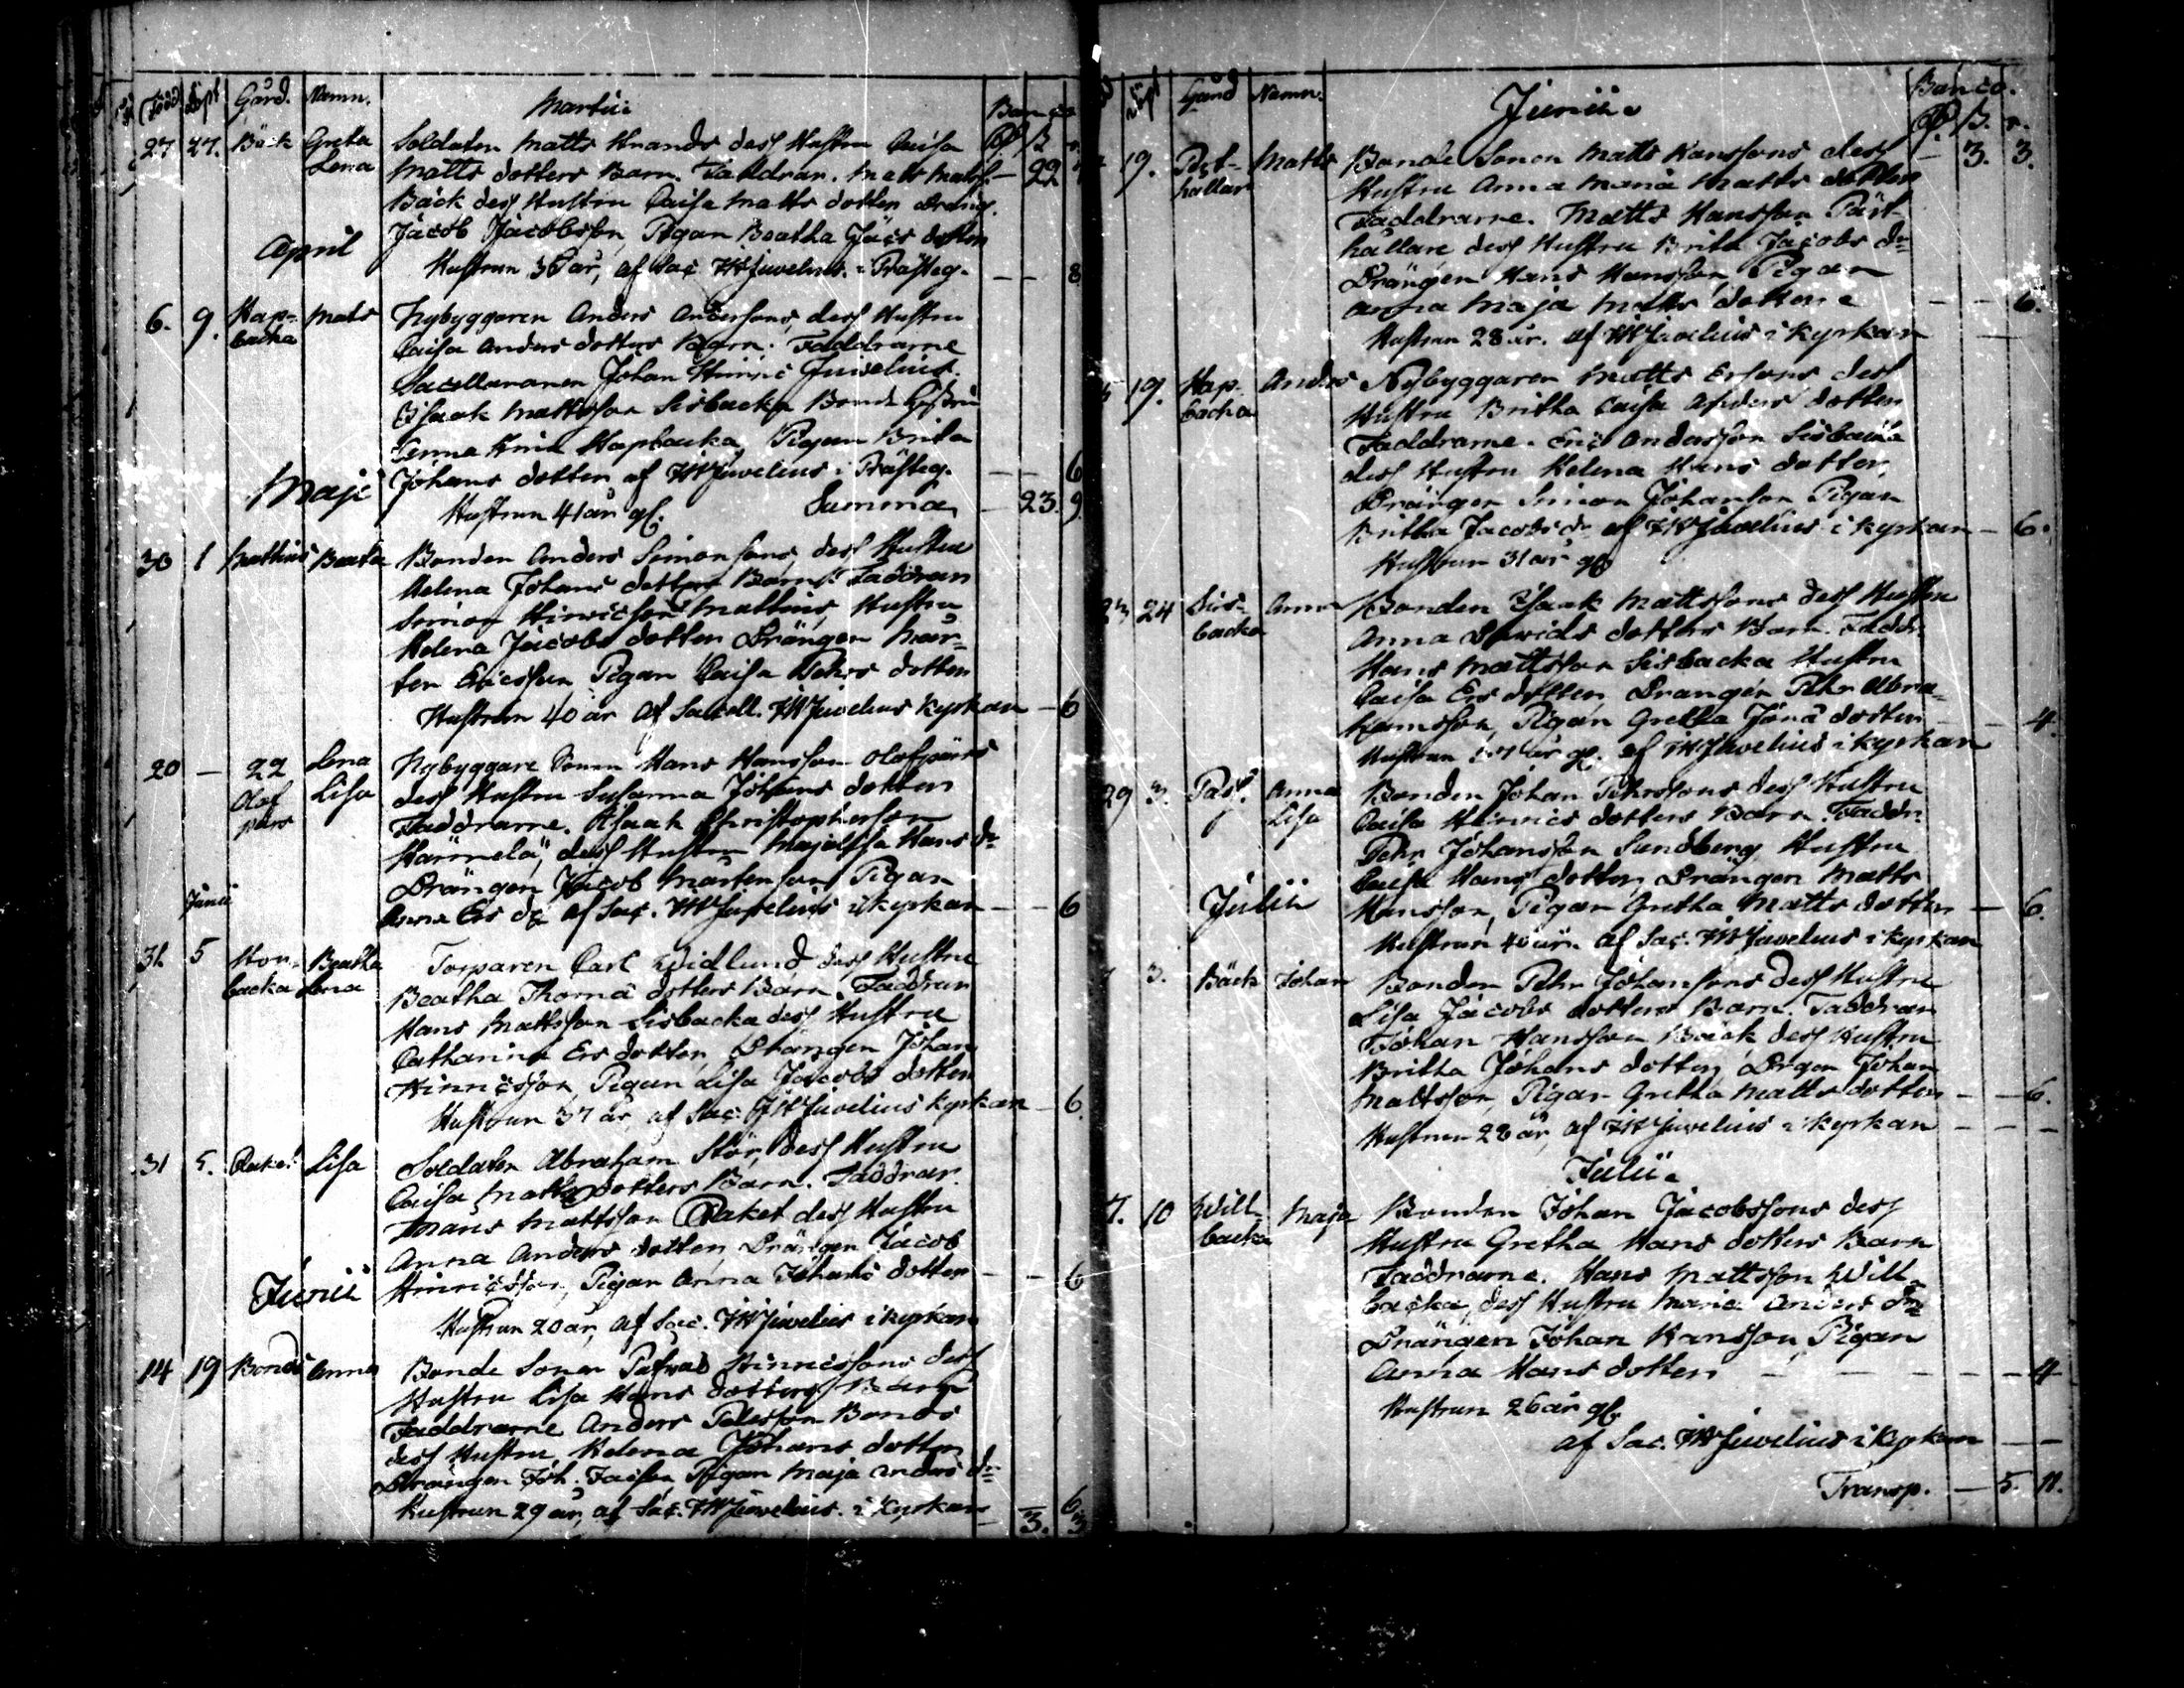 Född Döpt Gård. Namn. Martii Banco
27 27. Bäck Greta Soldaten Matts Knands dess Hustru Caisa
Lena Matts dotters Barn. Faddrar. Mats Matss. — 22
Bäck dess Hustru Caisa Matts dotter Dräng.
Jacob Jacobsson, Pigan Beatha Jacs dotter
April
Hustrun 36 år, af Sac. JH Juvelius i Prästeg. — — 8
6. 9. Hap- Mats Nybyggaren Anders Andersons, dess Hustru
backa Caisa Anders dotters Barn. Faddrarne
Sacellananen Johan Hinric Juvelius.
Isaak Mattsson Sisbacka Bonde
Anna Hapbacka, Pigan Brita
Johans dotter af JH Juvelius i Prästeg. — — 6
Maji
Hustrun 41 år gl. Summa — 23. 9
30 1 Mattius Beata Bonden Anders Simonsons, dess Hustru
Helena Johans dotters Barn. Faddran
Simon Hinricsson Mattius, Hustru
Helena Jacobs dotter Drängen Mår-
ten Ericsson Pigan Caisa Pehrs dotter
Hustrun 40 år af Sacell. JH Juvelius Kyrkan — 6
20 — 22 Lena Nybyggare Sonen Hans Hansson Olofpärs
Olof Lisa dess Hustru Susanna Johans dotter
pärs Faddrarne. Isaak Christophersson
Hännelä, dess Hustru Majalisa Hans dr
Drängen Jacob Mårtenson Pigan
Junii Anna Ers dr af Sac. JH Juvelius i kyrkan — — 6
31. 5 Hon- Beatha Torparen Carl Widlund dess Hustru
backa Lena Beatha Thomä dotters Barn. Faddran
Hans Mattsson Sisbacka dess Hustru
Catharina Ers dotter, Drängen Johan
Hinricsson, Pigan Lisa Jacobs dotter
Hustrun 37 år af Sac. JH Juvelius Kyrkan — 6.
31 5. Raket Lisa Soldaten Abraham Stör, dess Hustru
Caisa Matts dotters Barn. Faddrar.
Hans Mattsson Raket dess Hustru
Anna Anders dotter Drängen Jacob
Junii Hinricsson, Pigan Anna Johans dotter — — 6
Hustrun 20 år, af Sac. JH Juvelius i kyrkan
14 19 Bonds Anna Bonde Sonen Hinricssons dess
Hustru Lisa Hans dotters Barn
Faddrarne Anders Bonds
dess Hustru, Helena Johans dotter
Drängen Joh. Pigan Maja Anders dr
Hustrun 29 år, af Sac. JH Juvelius i Kyrkan — 6
3. 3
Döpt Gård Namn. Junii Banco.
19. Pört- Matts Bonde Sonen Matts Hanssons dess — 3. 3.
hållar Hustru Anna Maria Matts dotter
Faddrarne. Matts Hansson Pört-
hållare dess Hustru Brita Jacobs dr
Drängen Hans Hansson, Pigan
Anna Maja Matts dotter — — 6.
Hustrun 28 år. af JH Juvelius i kyrkan —
19. Hap- Anders Nybyggaren Matts Ersons dess
backa Hustru Britha Caisa Anders dotter
Faddrarne. Eric Andersson Sisbacka
dess Hustru Helena Hans dotter,
Drängen Simon Johanson Pigan
Britha Jacobs dr af JH Juvelius i kyrkan — 6.
Hustrun 31 år gl
23 24 Sis- Anna Bonden Isaak Mattssons dess Hustru
backa Anna Davids dotters Barn. Faddr.
Hans Mattsson Sisbacka Hustru
Caisa Ers dotter, Drängen Pehr Abra-
hamsson, Pigan Gretha Jonä dotter — — 4.
Hustrun 37 år gl. af JH Juvelius i kyrkan
29 3. Pass. Anna Bonden Johan Pehrssons dess Hustru
Lisa Caisa Hinrics dotters Barn. Faddr.
Pehr Johansson Sundberg Hustru
Caisa Hans dotter, Drängen Matts
Julii Hansson, Pigan Gretha Matts dotter — 6.
Hustrun 40 år. af Sac. JH Juvelius i kyrkan
3. Bäck Johan Bonden Pehr Johanssons dess Hustru
Lisa Jacobs dotters Barn. Faddran
Johan Hansson Bäck dess Hustru
Britha Johans dotter, Drgen Johan
Mattsson, Pigan Gretha Matts dotter — — 6.
Hustrun 28 år, af JH Juvelius i Kyrkan — — —
Julii
7. 10 Will- Maja Bonden Johan Jacobssons dess
backa Hustru Gretha Hans dotters Barn
Faddrarne. Hans Mattsson Will-
backa, dess Hustru Maria Anders dr
Drängen Johan Hansson, Pigan
Anna Hans dotter — — — — — 4
Hustrun 26 år gl.
af Sac. JH Juvelius i kyrkan — —
Transp. — 5. 11.